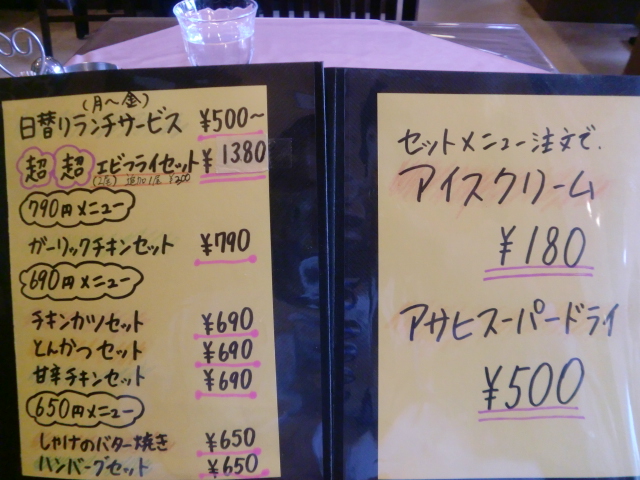 (月～金)
日替りランチサービス ¥500～
超 超 エビフライセット ¥1380
(2尾) 追加1尾 ¥300
790円メニュー
ガーリックチキンセット ¥790
690円メニュー
チキンカツセット ¥690
とんかつセット ¥690
甘辛チキンセット ¥690
650円メニュー
しゃけのバター焼き ¥650
ハンバーグセット ¥650
セットメニュー注文で.
アイスクリーム
¥180
アサヒスーパードライ
¥500